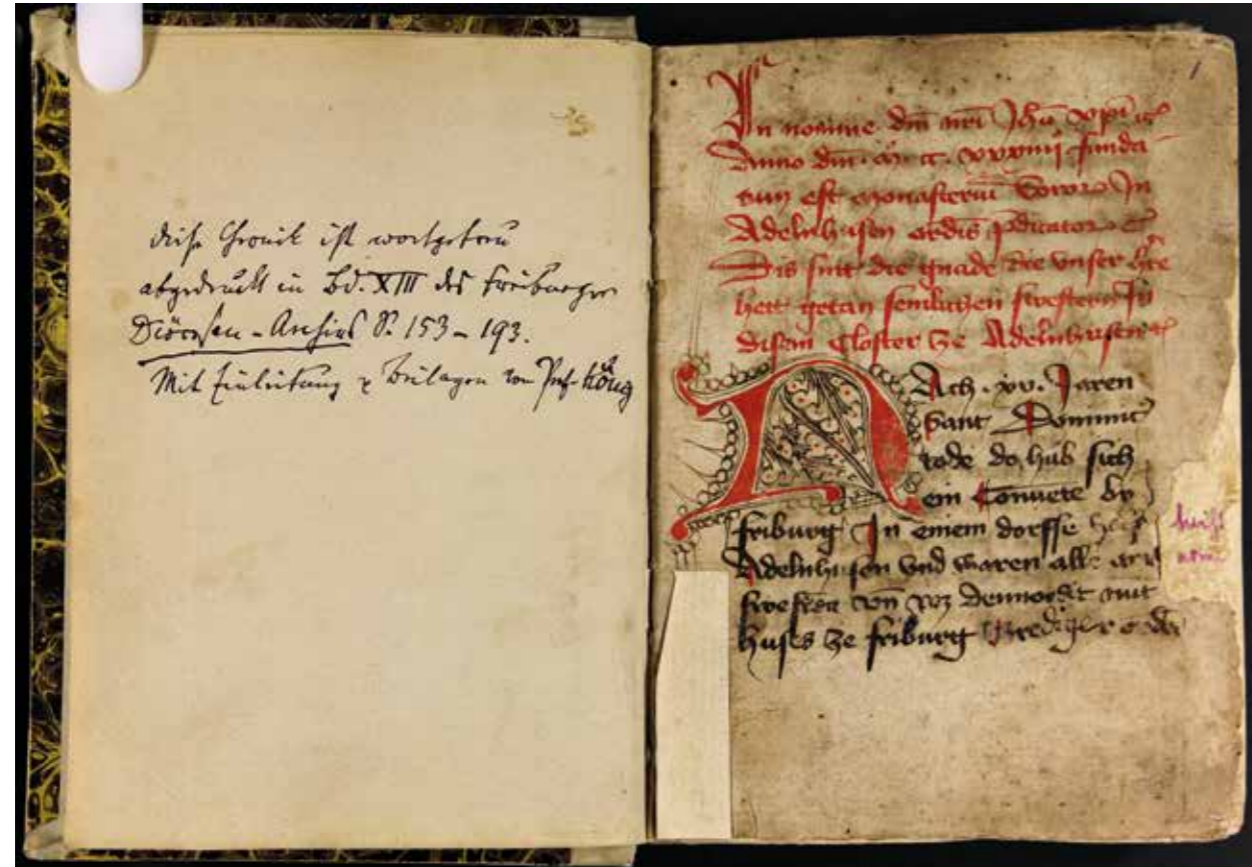 diese Chronik ist wortgetreu
abgedruckt in Bd. XIII des Freiburger
Diöcesan-Archivs S. 153 – 193.
Mit Einleitung & Beilagen von Prof. König
1
In nomine dm̄ nr̄i Jhū xp̄i
Anno dm̄. m. cc. xxxiiij funda
tum est monasteriū Soror In
Adelnhusen ordīs p̄dicator
Dis sint die gnade die vnser hre
hett getan semlichen swestern In
disem Closter ze Adelnhusen
NAch . xv. Jaren
Sant Dominic
tode do hůb sich
ein Convete by
friburg In einem dorffe
Adelnhusen vnd waren alle
swestern von
huses ze friburg prediger orde